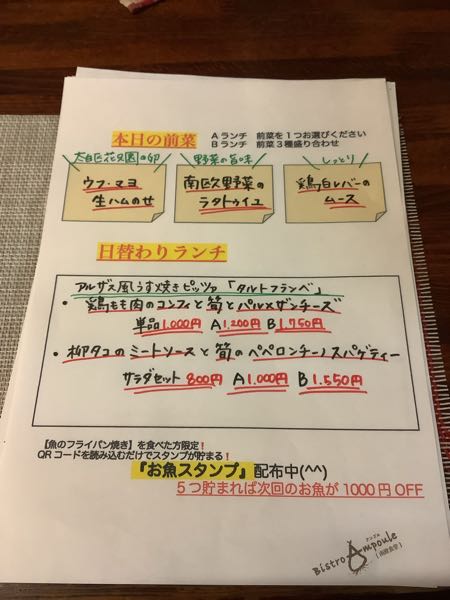 本日の前菜
Aランチ 前菜を1つお選びください
Bランチ 前菜3種盛り合わせ
太白区花兄園の卵
ウフ・マヨ
生ハムのせ
野菜の旨味
南欧野菜の
ラタトゥイユ
しっとり
鶏白レバーの
ムース
日替わりランチ
アルザス風うす焼きピッツァ「タルトフランベ」
・鶏もも肉のコンフィと筍とパルメザンチーズ
単品1,000円 A1,200円 B1,750円
・柳タコのミートソースと筍のペペロンチーノスパゲティー
サラダセット800円 A1,000円 B1,550円
【魚のフライパン焼き】を食べた方限定!
QRコードを読み込むだけでスタンプが貯まる!
『お魚スタンプ』配布中(^^)
5つ貯まれば次回のお魚が1000円OFF
アンプル
Bistro Ampoule
(南欧食堂)